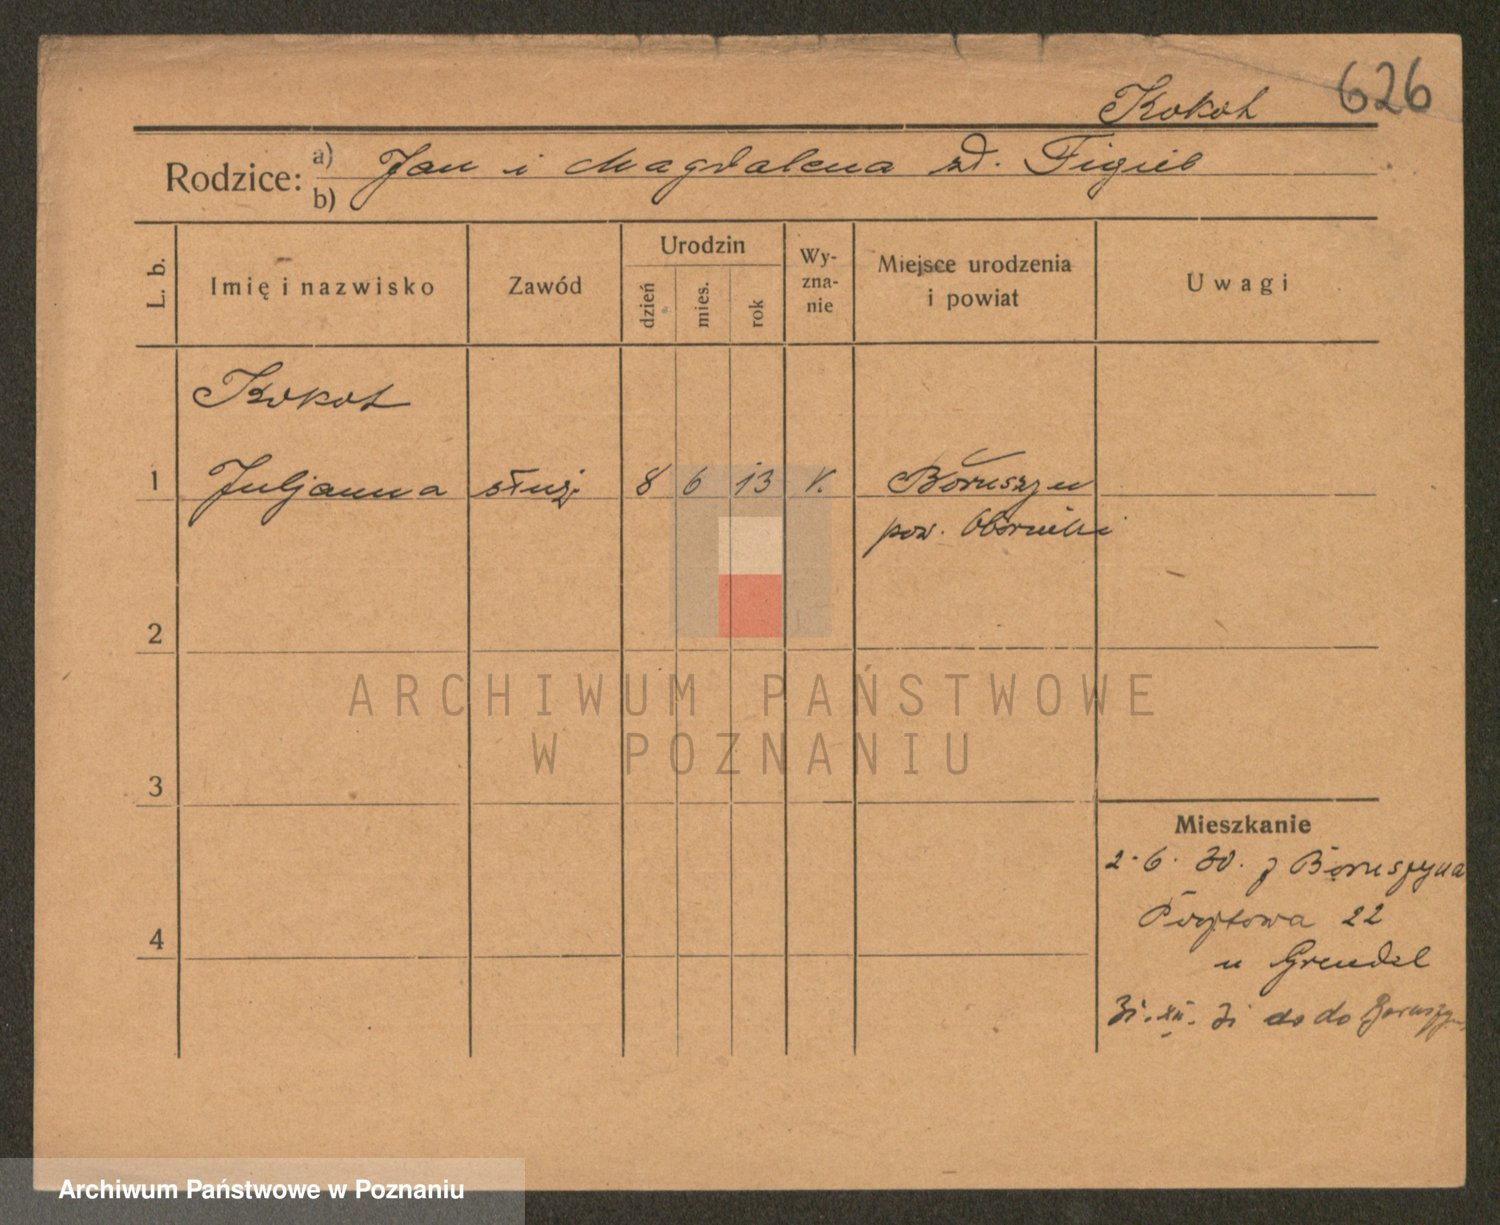 626
Kokot
Rodzice: a) Jan i Magdalena zd. Figiel
b)
L. b. Imię i nazwisko Zawód Urodzin dzień mies. rok Wy-zna-nie Miejsce urodzenia i powiat Uwagi
Kokot
1 Juljanna służ. 8 6 13 k. Boruszyn
pow. Oborniki
2
ARCHIWUM PAŃSTWOWE
W POZNANIU
3
Mieszkanie
2.6.30. z Boruszyna
Pocztowa 22
4
u Grendel
31.XII.31 do Boruszyn
Archiwum Państwowe w Poznaniu